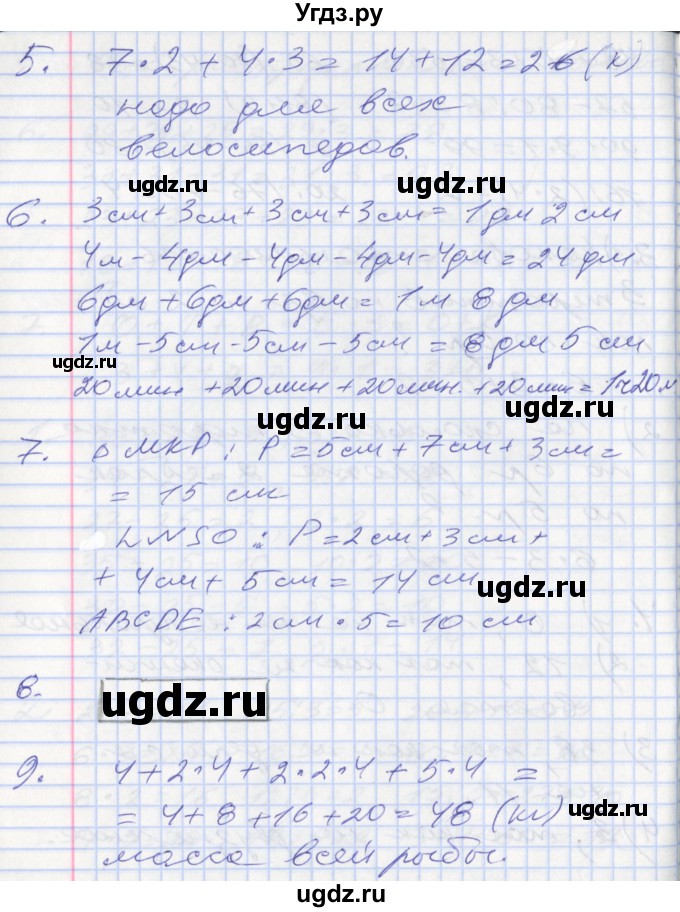 Угдз.ру
5. 7·2 + 4·3 = 14 + 12 = 26 (к)
надо для всех
велосипедов.
ugdz.ru
6. 3см + 3см + 3см + 3см = 1дм 2см
4м - 4дм - 4дм - 4дм - 4дм = 24дм
6дм + 6дм + 6дм = 1м 8дм
ugdz.ru
1м - 5см - 5см - 5см = 8дм 5см
20мин + 20мин + 20мин. + 20мин = 1ч20м
ugdz.ru
7. △ MKP : P = 5см + 7см + 3см =
= 15 см
LNSO : P = 2см + 3см +
+ 4см + 5см = 14 см
ugdz.ru
ABCDE : 2см · 5 = 10 см
8. ugdz.ru
9. 4 + 2·4 + 2·2·4 + 5·4 =
= 4 + 8 + 16 + 20 = 48 (кг)
ugdz.ru
масса всей рыбы.
ugdz.ru